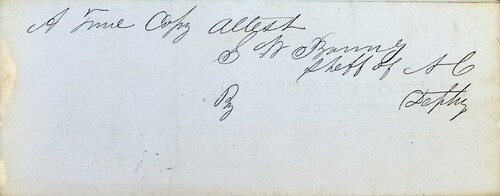 A True Copy Attest
S W
Sheff of A C
By Depty